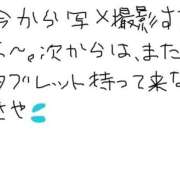 今から写メ撮影す
よ~。次からは、また
タブレット持って来な
さや